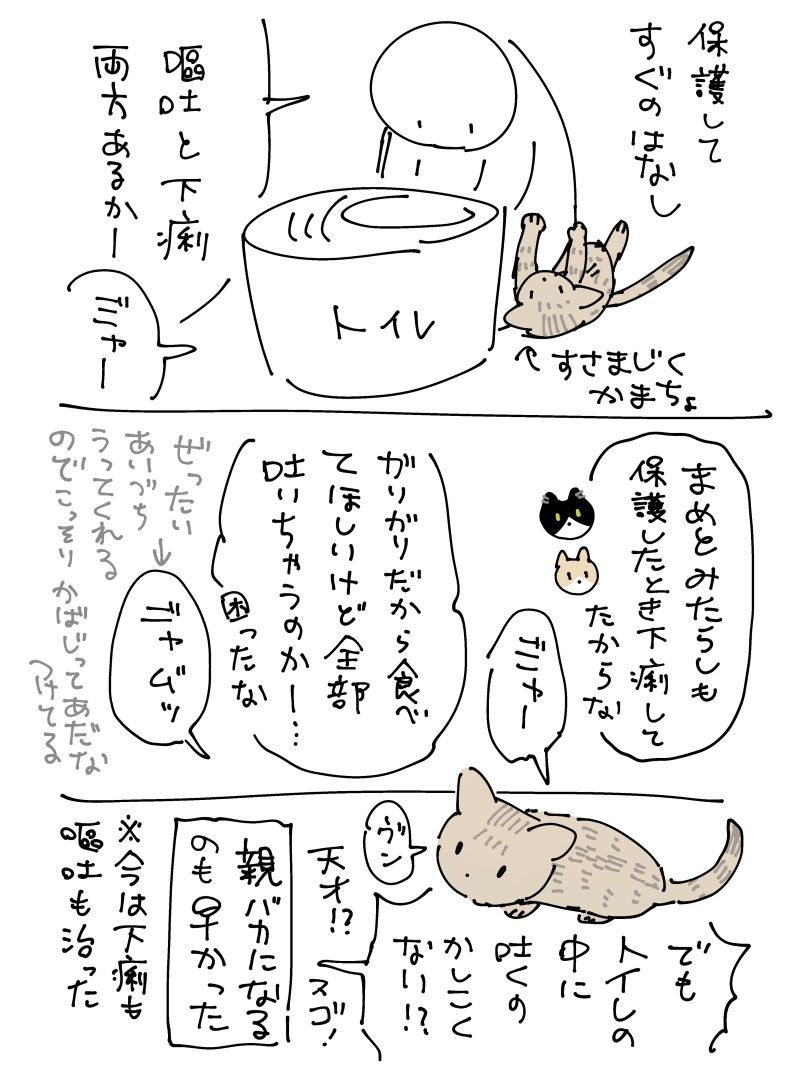 保護して
すぐのはなし
嘔吐と下痢
両方あるかー
トイレ
デニャー
↑すさまじく
かまちょ
まめとみたらしも
保護したとき下痢して
たからな
デニャー
がりがりだから食べ
てほしいけど全部
吐いちゃうのかー…
困ったな
デニャムッ
ぜったい→
あいづち
うってくれる
のでこっそりかばじってあだな
つけてる
でも
トイレの
中に
吐くの
かしこく
ない!?
ヴン
天才!?
スゴ!
親バカになる
のも早かった
※今は下痢も
嘔吐も治った